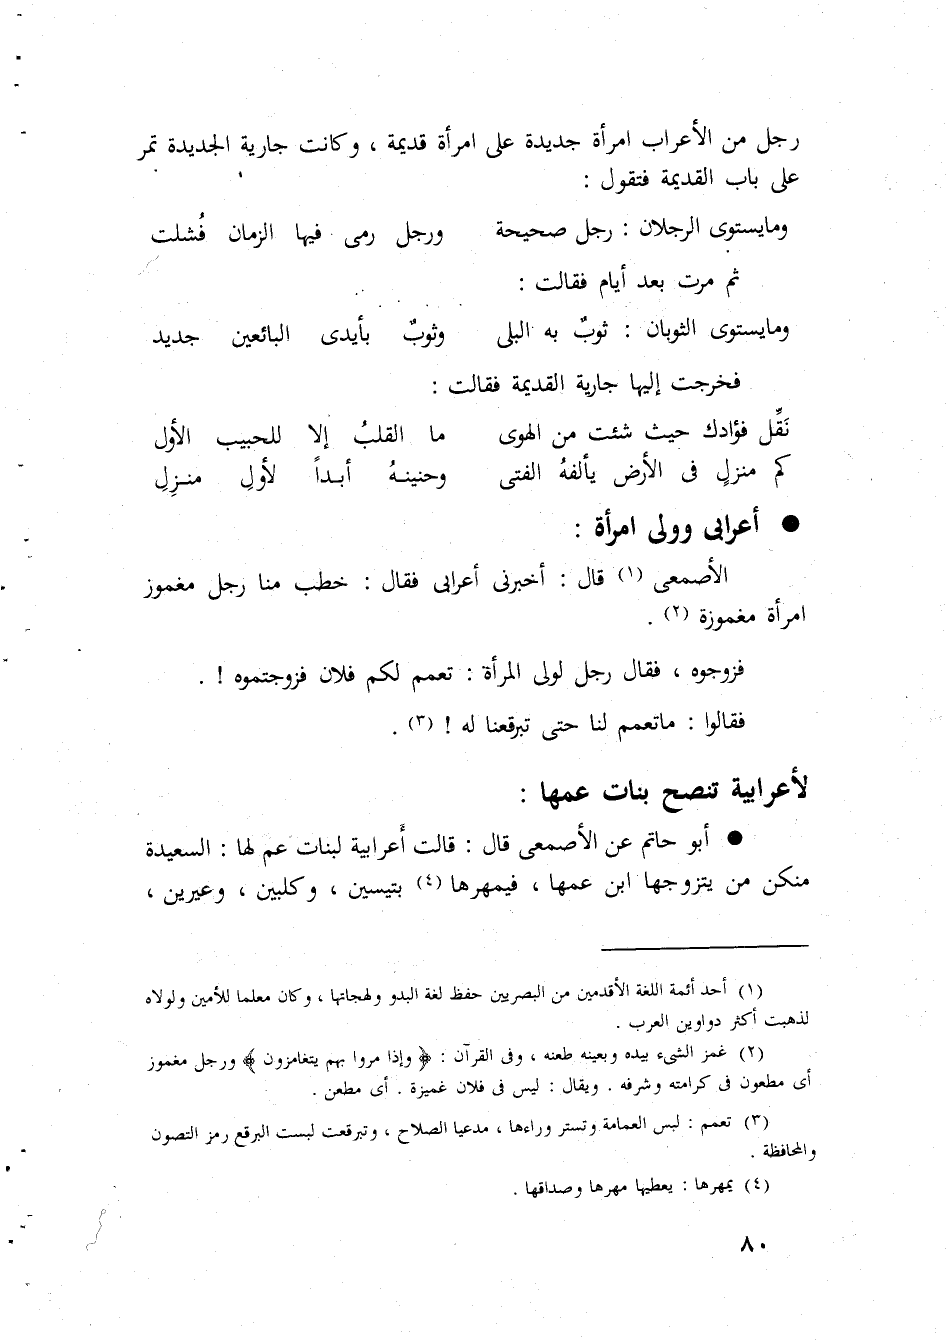 رجل من الأعراب امرأة جديدة على امرأة قديمة ، وكانت جارية الجديدة تمر
على باب القديمة فتقول :
ومايستوى الرجلان : رجل صحيحة ورجل رمى فيها الزمان فُشلت
ثم مرت بعد أيام فقالت :
ومايستوى الثوبان : ثوبٌ به البلى وثوبٌ بأيدى البائعين جديد
فخرجت إليها جارية القديمة فقالت :
نَقِّل فؤادك حيث شئت من الهوى ما القلبُ إلا للحبيب الأول
كم منزلٍ فى الأرض يألفهُ الفتى وحنينـهُ أبـداً لأولِ منـزِلِ
● أعرابى وولى امرأة :
الأصمعى (١) قال : أخبرنى أعرابى فقال : خطب منا رجل مغموز
امرأة مغموزة (٢) .
فزوجوه ، فقال رجل لولى المرأة : تعمم لكم فلان فزوجتموه ! .
فقالوا : ماتعمم لنا حتى تبرقعنا له ! (٣) .
لأعرابية تنصح بنات عمها :
● أبو حاتم عن الأصمعى قال : قالت أَعرابية لبنات عم لها : السعيدة
منكن من يتزوجها ابن عمها ، فيمهرها (٤) بتيسين ، وكلبين ، وعيرين ،
(١) أحد أئمة اللغة الأقدمين من البصريين حفظ لغة البدو ولهجاتها ، وكان معلما للأمين ولولاه
لذهبت أكثر دواوين العرب .
(٢) غمز الشىء بيده وبعينه طعنه ، وفى القرآن : ﴿ وإذا مروا بهم يتغامزون ﴾ ورجل مغموز
أى مطعون فى كرامته وشرفه . ويقال : ليس فى فلان غميزة . أى مطعن .
(٣) تعمم : لبس العمامة وتستر وراءها ، مدعيا الصلاح ، وتبرقعت لبست البرقع رمز التصون
والمحافظة .
(٤) يمهرها : يعطيها مهرها وصداقها .
٨٠